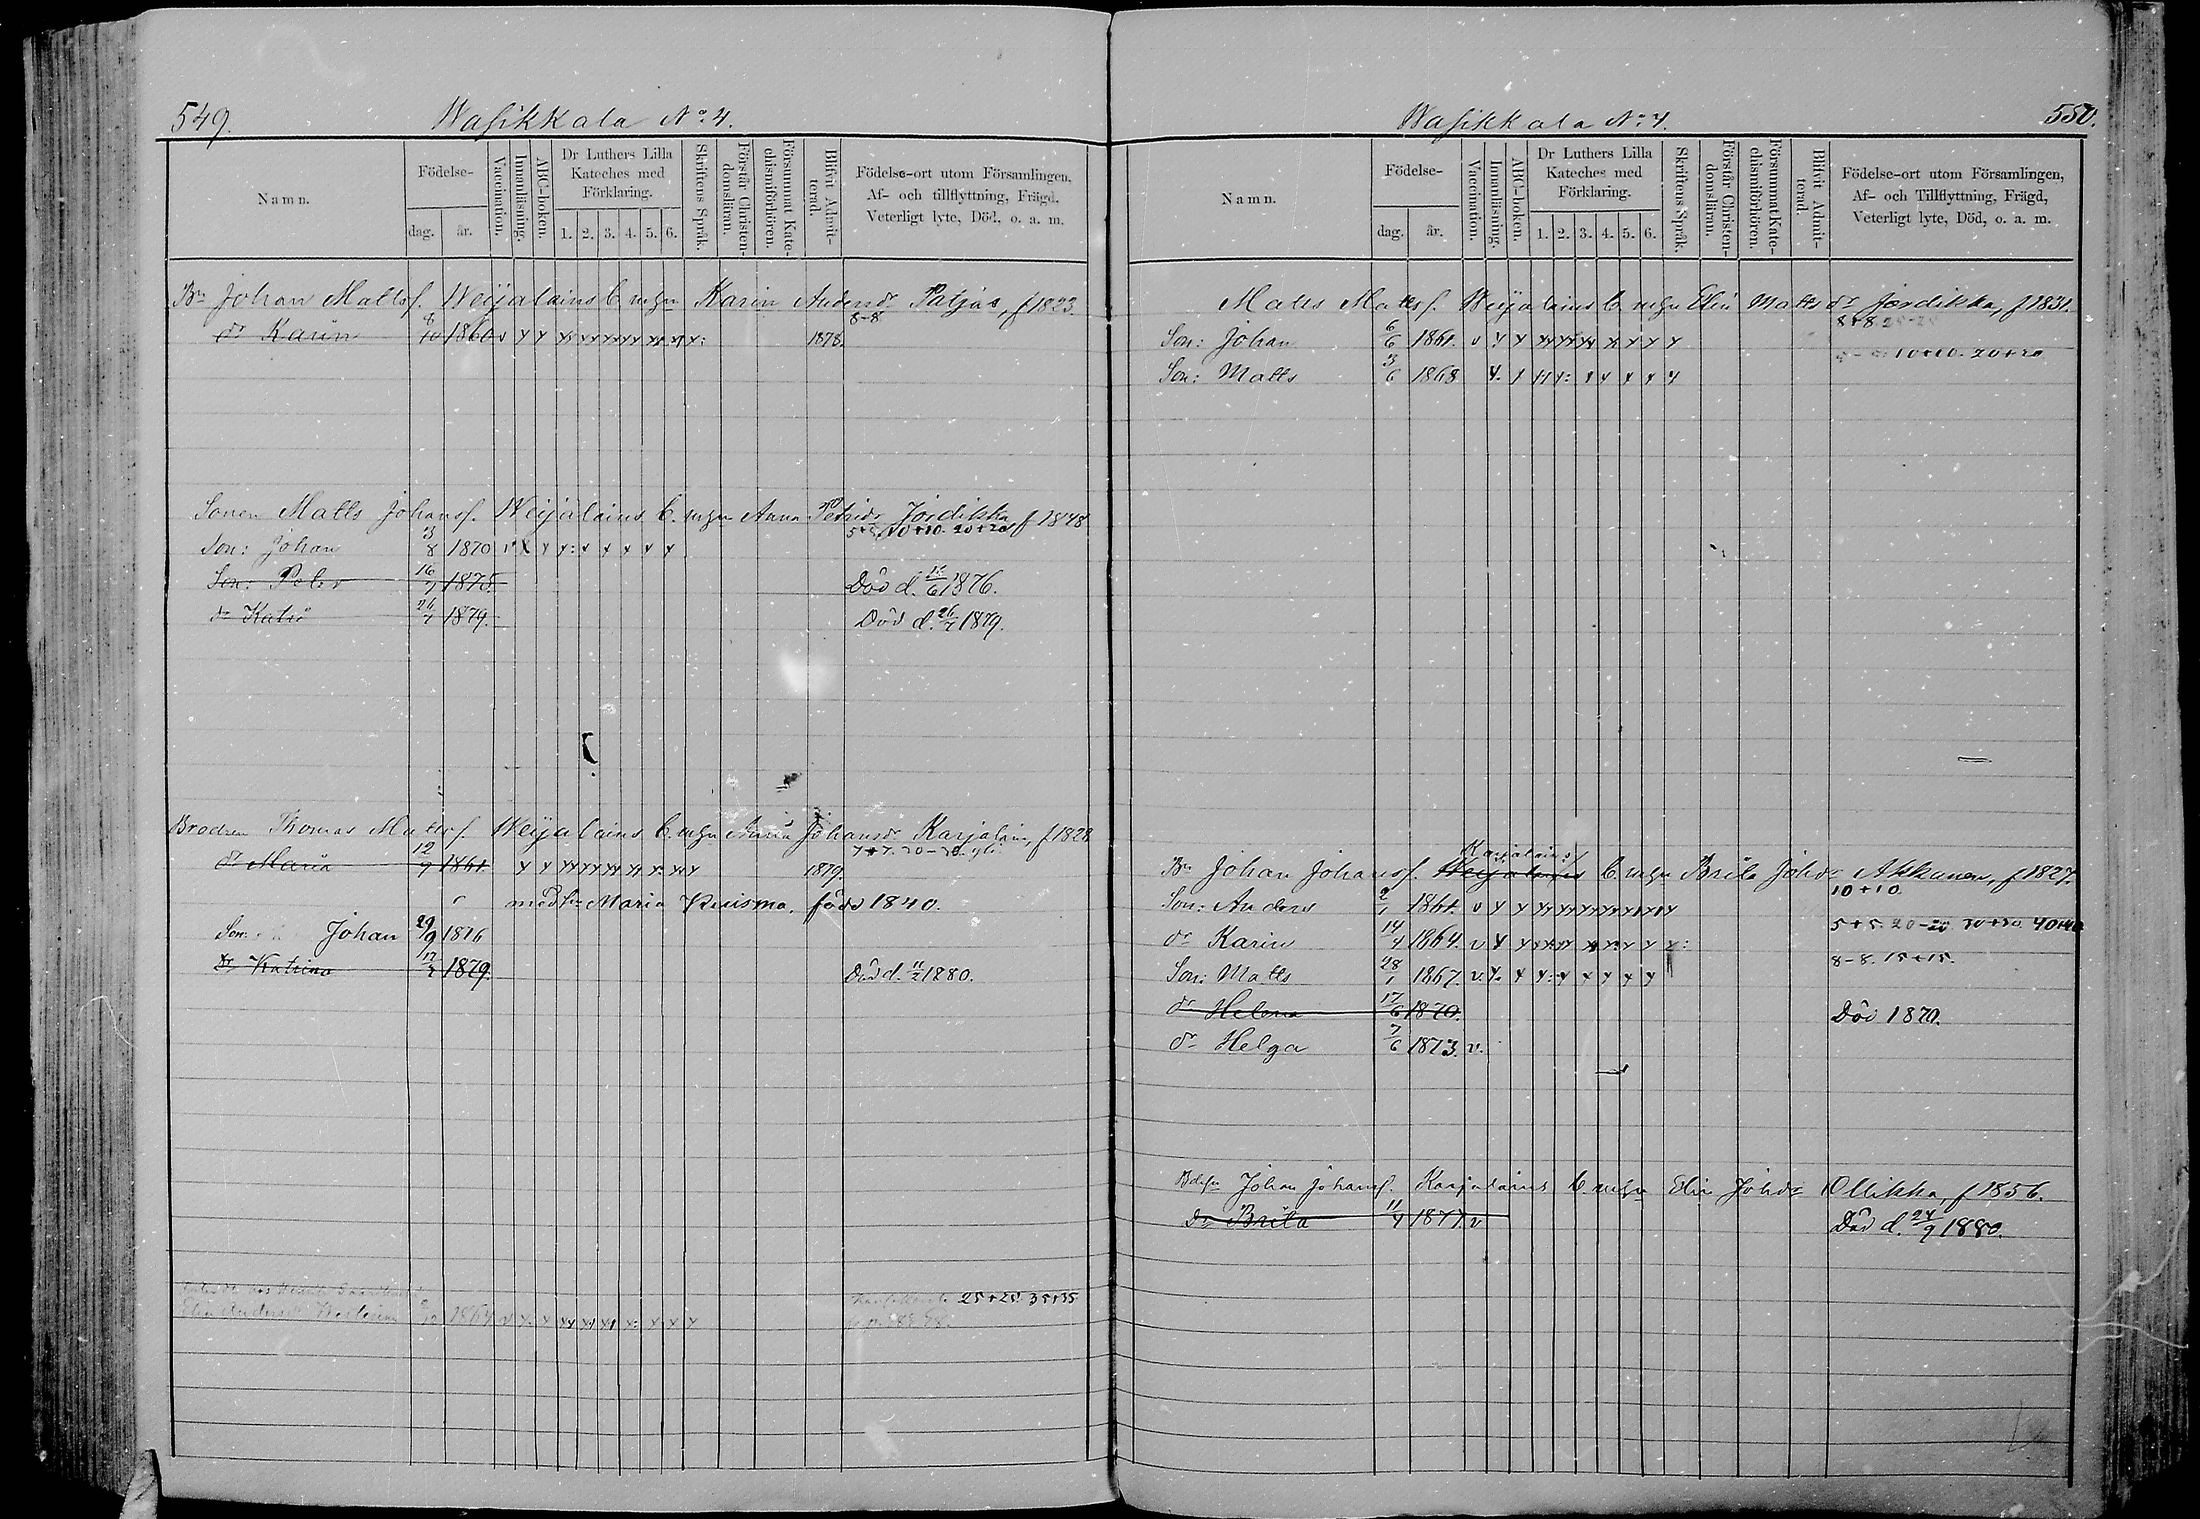 549.
Wasikkala No: 4.
Namn.
Födelse-
dag.
år.
Vaccination.
Innanläsning.
ABC-boken.
Dr Luthers Lilla
Kateches med
Förklaring.
1. 2. 3. 4. 5. 6.
Skriftens Språk.
Förstår Christen-
domsläran.
Försummat Kate-
chismiförhören.
Blifvit Admit-
terad.
Födelse-ort utom Församlingen,
Af- och tillflyttning, Frägd,
Veterligt lyte, Död, o. a. m.
Bn Johan Mattsf. Weijalains C. mgn Karin Andersdr Patjas, f 1823.
8-8
dr Karin 8/10 1860 v 1878.
Sonen Matts Johansf. Weijalains C. mgn Anna Petridr Jordikka f 1848
5+5 10+10. 20+20
Son: Johan 3/8 1870
Son: Peter 16/7 1875. Död d. /6 1876.
dr Katri 26/7 1879. Död d. 26/7 1879.
Brodren Thomas Mattsf. Weijalains C. mgn Maria Johansdr Karjalain, f 1828
7+7. 20-20.
dr Maria 12/9 1861. 1879.
med Maria Kuisma. född 1840.
Son: Johan 29/9 1876
Dr Katrina 17/7 1879. Död d. 11/2 1880.
1864
25+25 35+35
550.
Wasikkala No: 4.
Namn.
Födelse-
dag.
år.
Vaccination.
Innanläsning.
ABC-boken.
Dr Luthers Lilla
Kateches med
Förklaring.
1. 2. 3. 4. 5. 6.
Skriftens Språk.
Förstår Christen-
domsläran.
Försummat Kate-
chismiförhören.
Blifvit Admit-
terad.
Födelse-ort utom Församlingen,
Af- och Tillflyttning, Frägd,
Veterligt lyte, Död, o. a. m.
Matts Mattsf. Weijalains C. mgn Elin Mattsdr Jordikka, f 1831.
8+8 25-25
Son: Johan 6/6 1861. v
10+10. 20+20
Son: Matts 3/6 1868
Karjalains
Bn Johan Johansf. Weijalains C. mgn Brita Johdr Akkanen, f 1827.
10+10
Son: Anders 2/1 1861. v
5+5. 20-20 30+30. 40+40
dr Karin 14/4 1864. v
8-8. 15+15.
Son: Matts 28/1 1867. v.
dr Helena 17/6 1870. Död 1870.
dr Helga 7/6 1873. v.
Johan Johansf. Karjalains C. mgn Elin Johdr Ollikka, f 1856.
Dr Brita 11/4 1877. v Död d. 24/9 1880.